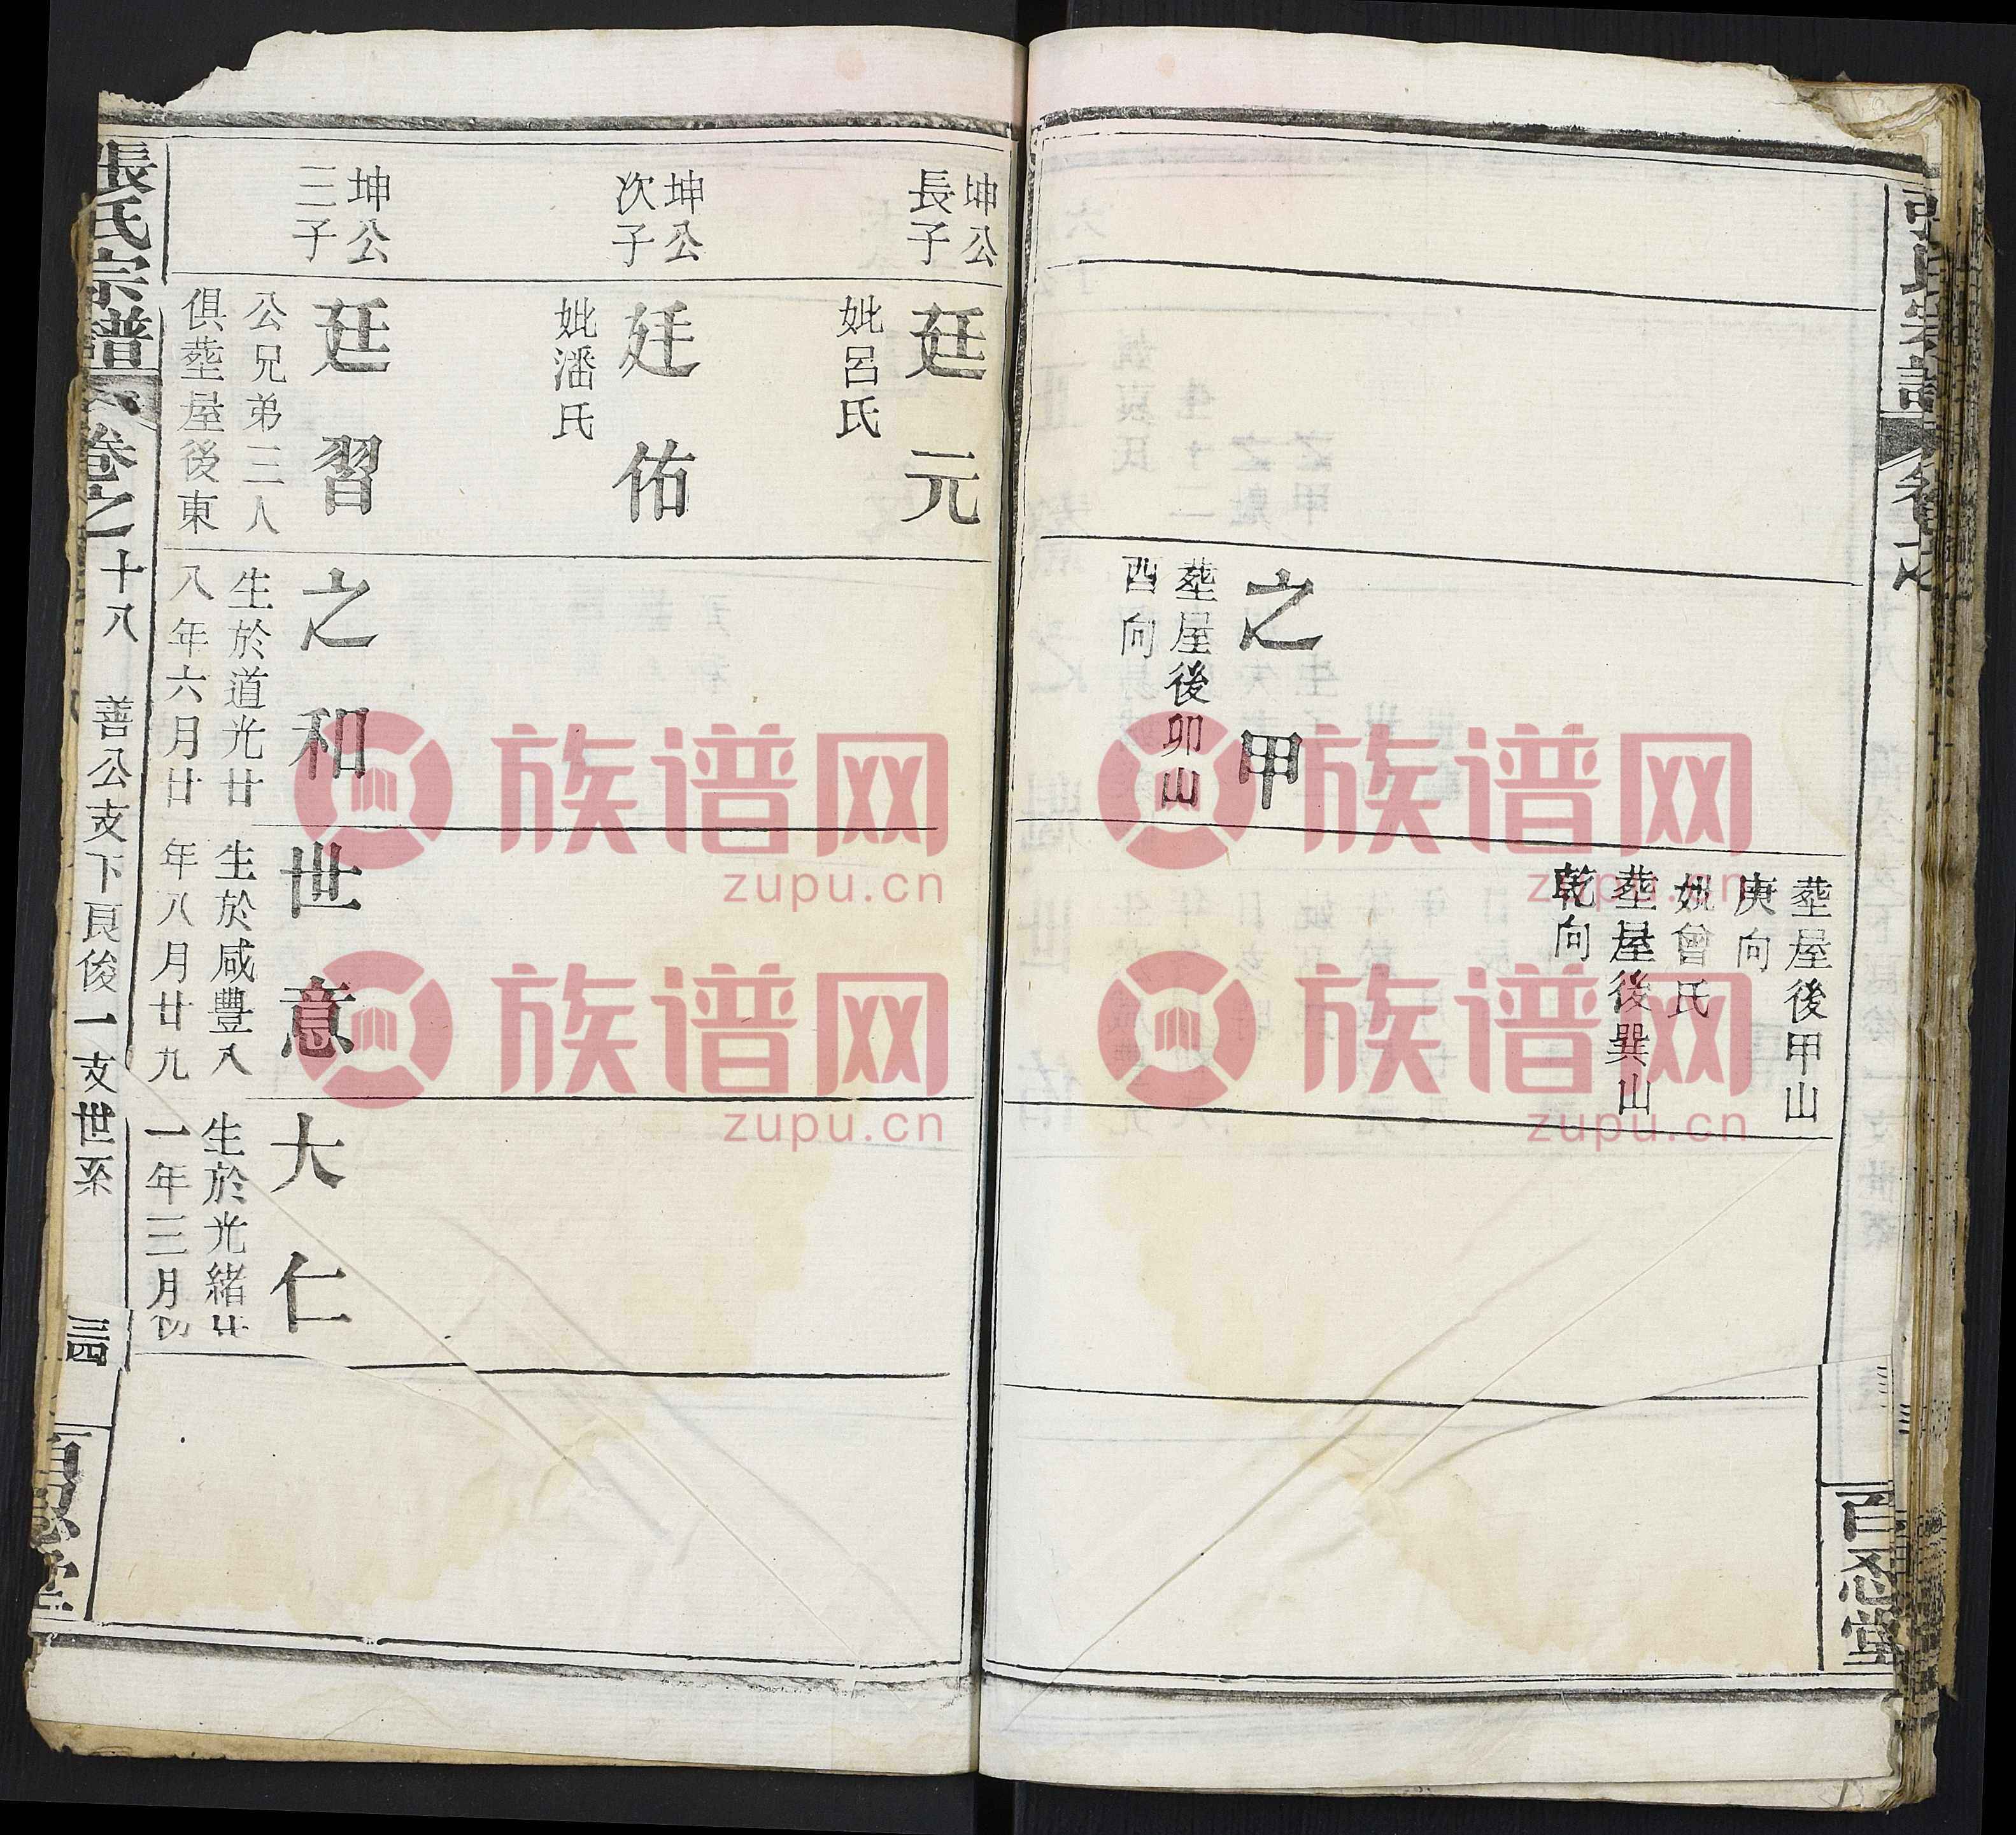 葬屋後甲山
庚向
妣曾氏
葬屋後巽山
乾向
之甲
葬屋後卯山
酉向
百忍堂
坤公
長子
廷元
妣呂氏
坤公
次子
廷佑
妣潘氏
坤公
三子
廷習
公兄弟三人
俱葬屋後東
之和
生於道光廿
八年六月廿
世意
生於咸豐八
年八月廿九
大仁
生於光緒廿
一年三月初
張氏宗譜
卷之
十八
善公支下良俊一支世系
三四
堂
族谱网
zupu.cn
族谱网
zupu.cn
族谱网
zupu.cn
族谱网
zupu.cn